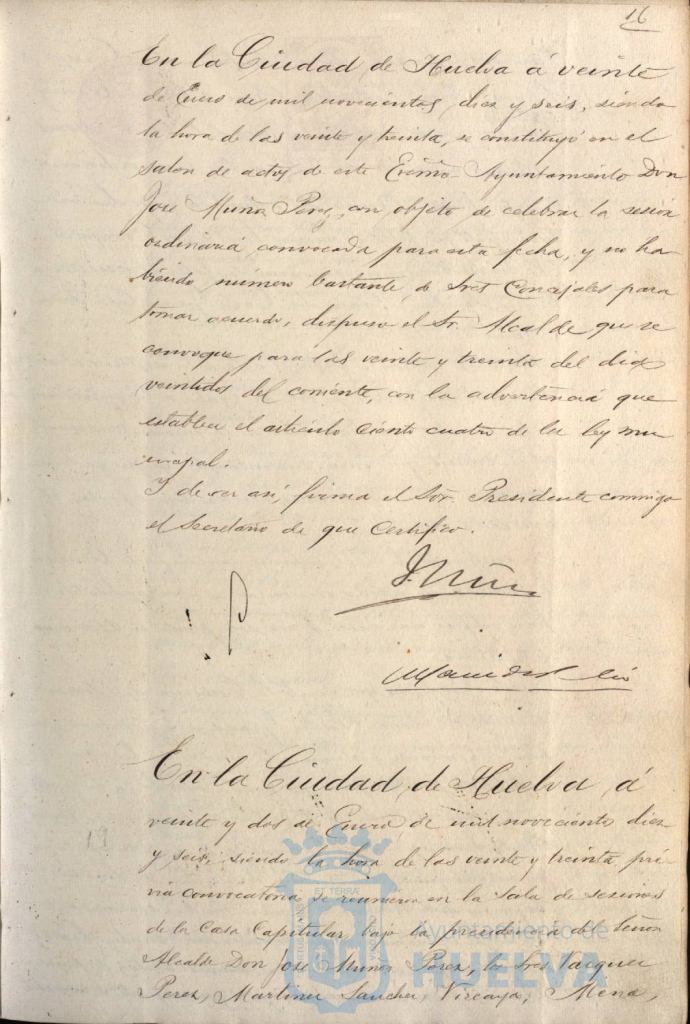 16
En la Ciudad de Huelva á veinte
de Enero de mil novecientos diez y seis, siendo
la hora de las veinte y treinta, se constituyó en el
salon de actos de este Excmo. Ayuntamiento Don
José Muñoz Perez, con objeto de celebrar la sesion
ordinaria convocada para esta fecha, y no ha-
biendo número bastante de Sres Concejales para
tomar acuerdo, dispuso el Sr. Alcalde que se
convoque para las veinte y treinta del dia
veintidos del corriente, con la advertencia que
establece el articulo ciento cuatro de la ley mu
nicipal.
Y de ser asi, firma el Sor. Presidente conmigo
el Secretario de que Certifico.
J. Muñ
En la Ciudad de Huelva, á
veinte y dos de Enero de mil novecientos diez
y seis, siendo la hora de las veinte y treinta pré-
via convocatoria se reunieron en la Sala de sesiones
de la Casa Capitular bajo la presidencia del Señor
Alcalde Don José Muñoz Perez, los Sres Vazquez
Perez, Martinez Sanchez, Vizcaya, Mena,
Ayuntamiento de
HUELVA